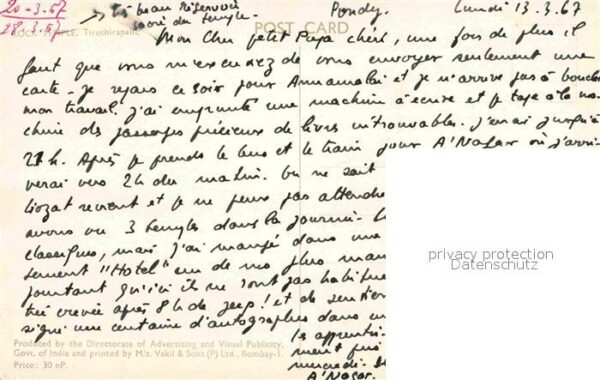 20-3.67
28.3.67
→ très beau réservoir
sacré du temple.
Pondy.
Lundi 13.3.67
POST CARD
ROCK TEMPLE, Tiruchirapalli
Mon Cher petit Papa chéri, une fois de plus il
faut que vous m'excusiez de vous envoyer seulement une
carte. Je repars ce soir pour Annamalai et je n'arrive pas à boucler
mon travail. J'ai emprunté une machine à écrire et je tape à la ma-
chine des passages précieux de livres introuvables. J'en ai jusqu'à
21h. Après je prends le bus et le train pour A'Nagar où j'arri-
verai vers 2h du matin. On ne sait
revient et je ne peux pas attendre
avons vu 3 temples dans la journée.
classiques, mais j'ai mangé dans une
sement "Hotel" un de nos plus
pourtant qu'ici ils ne sont pas
très crevée après 8h de jeep! et de
signé une centaine d'autographes dans
Produced by the Directorate of Advertising and Visual Publicity,
Govt. of India and printed by M/s. Vakil & Sons (P) Ltd., Bombay-1.
Price: 30 nP.
mercredi.
A'Nagar.
privacy protection
Datenschutz